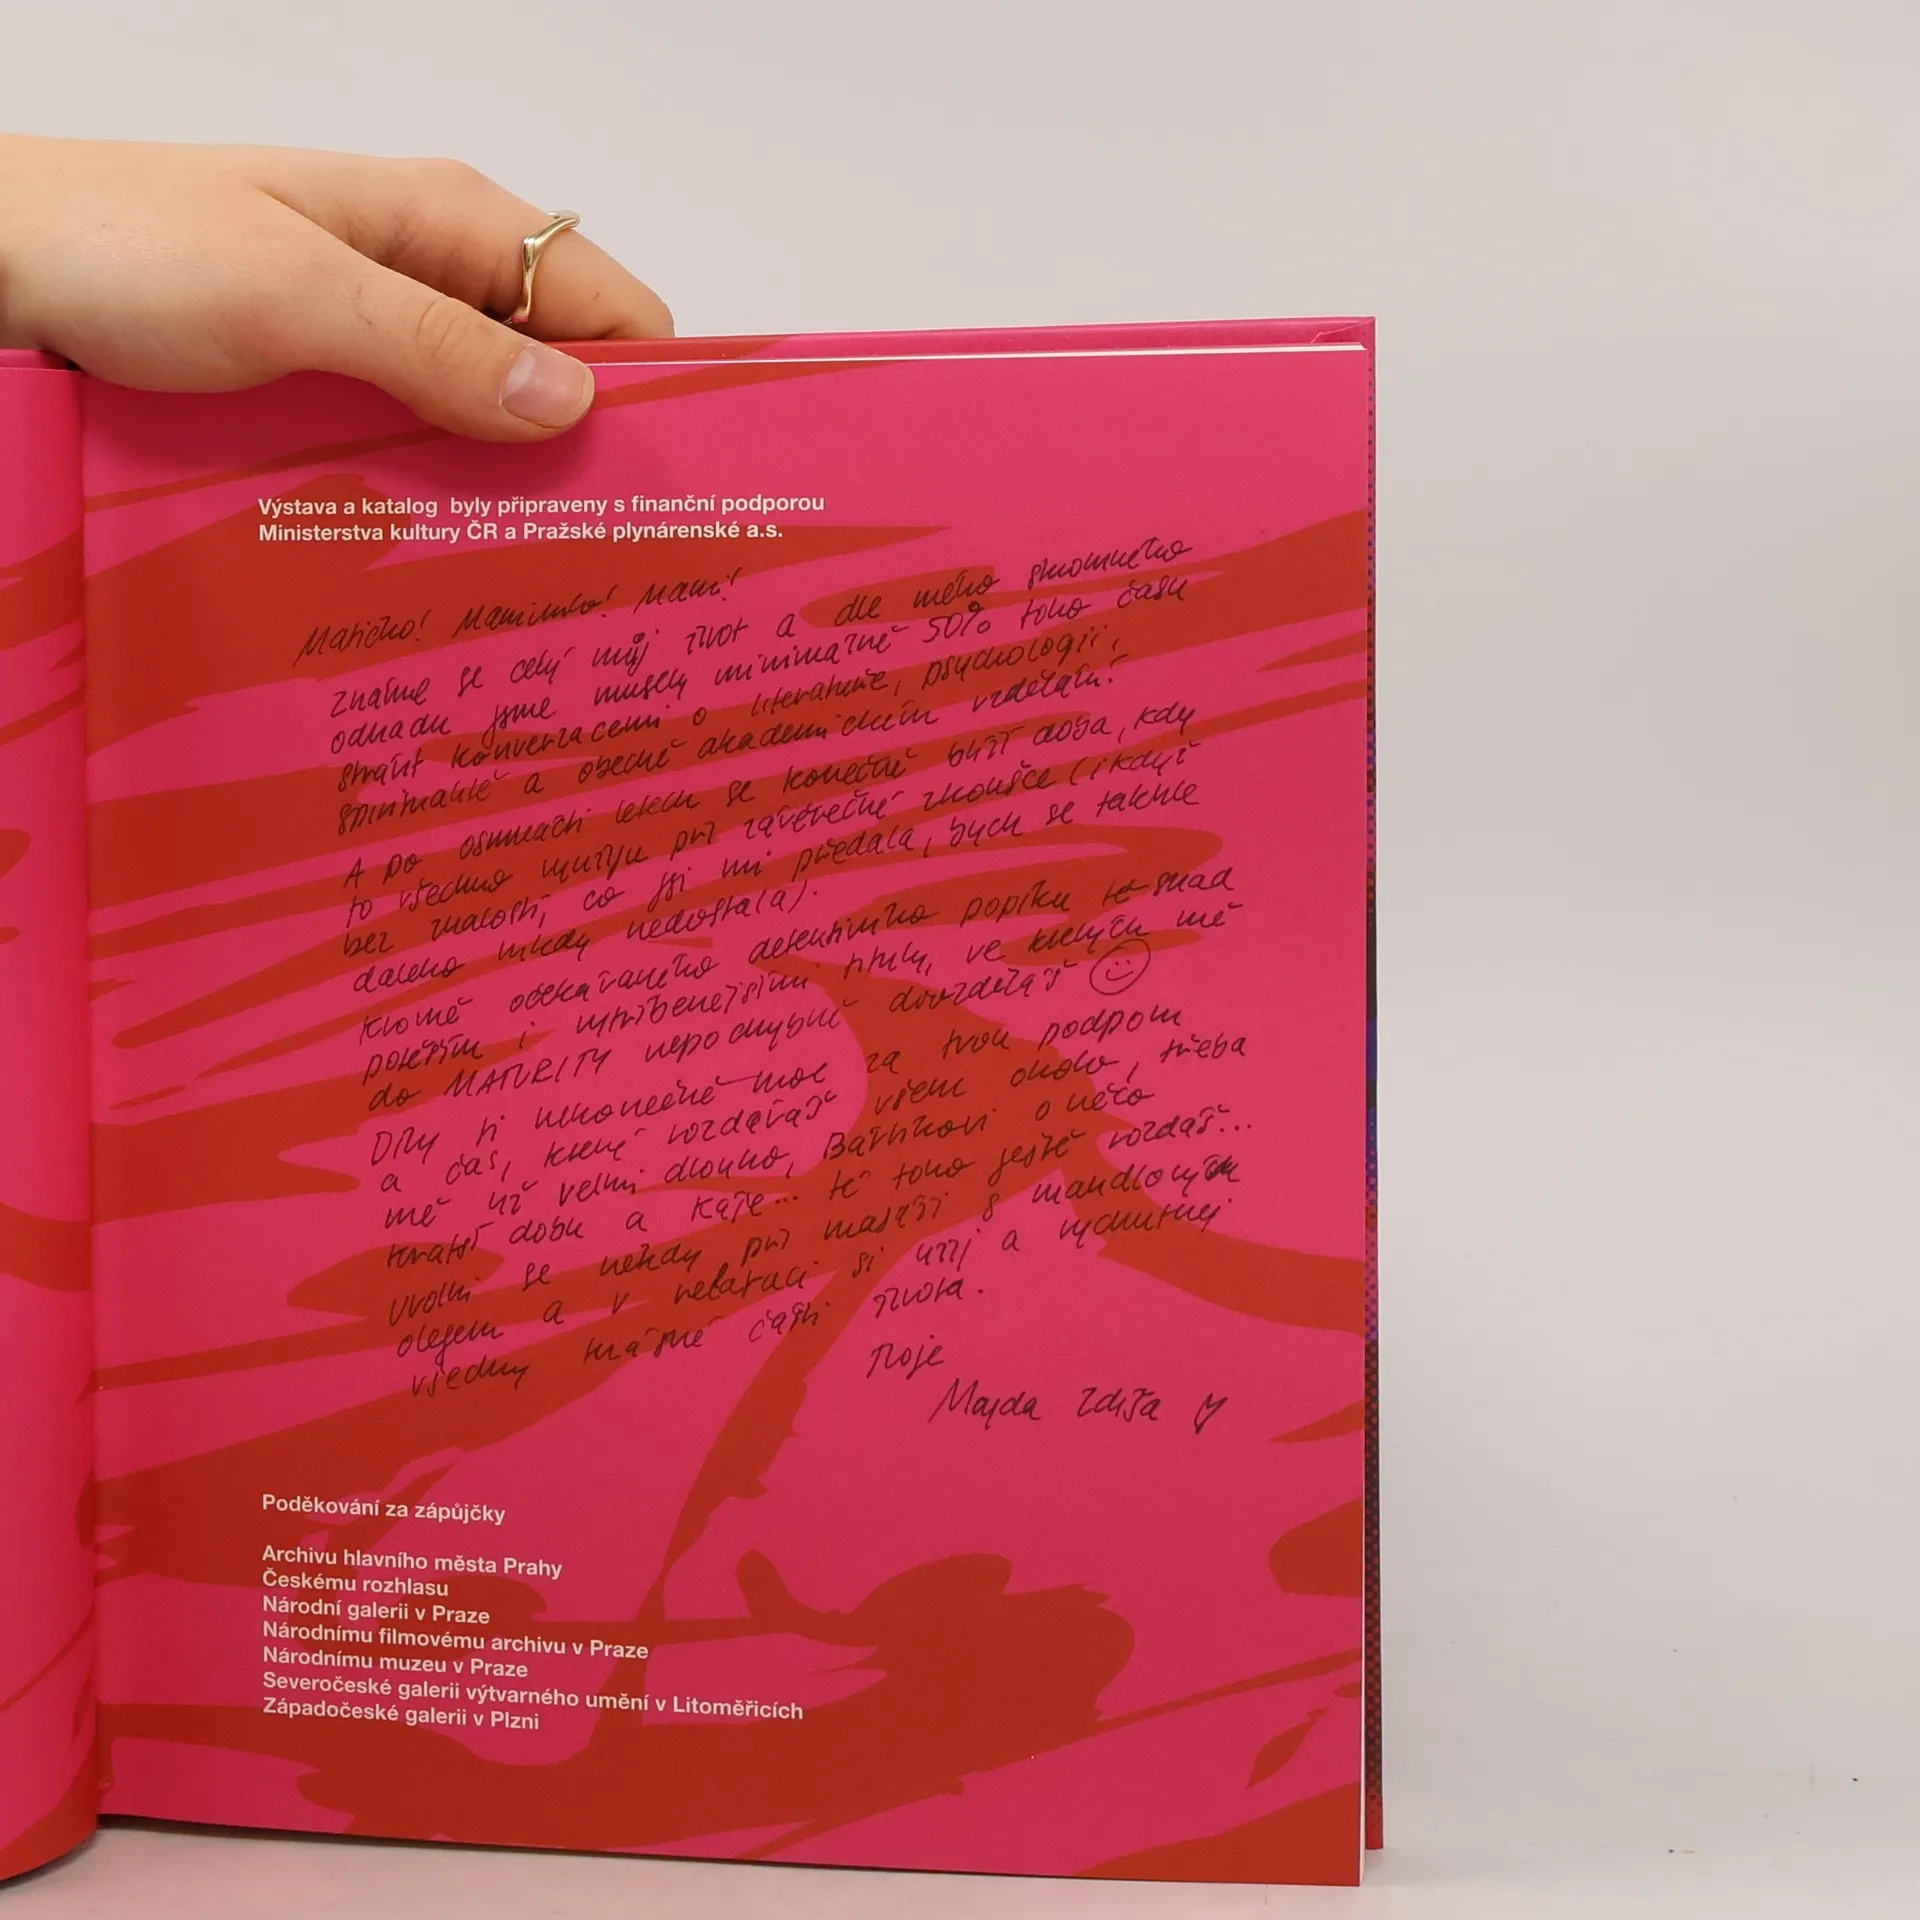 Výstava a katalog byly připraveny s finanční podporou
Ministerstva kultury ČR a Pražské plynárenské a.s.
Matičko! Maminko! Mami!
Známe se celý můj život a dle mého skromného
odhadu jsme musely minimálně 50% toho času
strávit konverzacemi o literatuře, psychologii,
a obecně akademickém vzdělání.
A po osmnácti letech se konečně blíží doba, kdy
to všechno využiju při závěrečné zkoušce (i když
bez znalostí, co jsi mi předala, bych se takhle
daleko nikdy nedostala).
Kromě očekávaného detektivního popíku tě snad
potěším i vytříbenějšími tituly, ve kterých mě
do MATURITY nepochybně dovzděláš
Díky ti nekonečně moc za tvou podporu
a čas, který rozdáváš všem okolo, třeba
mě už velmi dlouho, Bártíkovi o něco
kratší dobu a Káje... té toho ještě rozdáš...
Uvolni se někdy při masáži s mandlovým
olejem a v relaxaci si užij a vychutnej
všechny krásné části života.
Tvoje
Majda Zdiša
Poděkování za zápůjčky
Archivu hlavního města Prahy
Českému rozhlasu
Národní galerii v Praze
Národnímu filmovému archivu v Praze
Národnímu muzeu v Praze
Severočeské galerii výtvarného umění v Litoměřicích
Západočeské galerii v Plzni